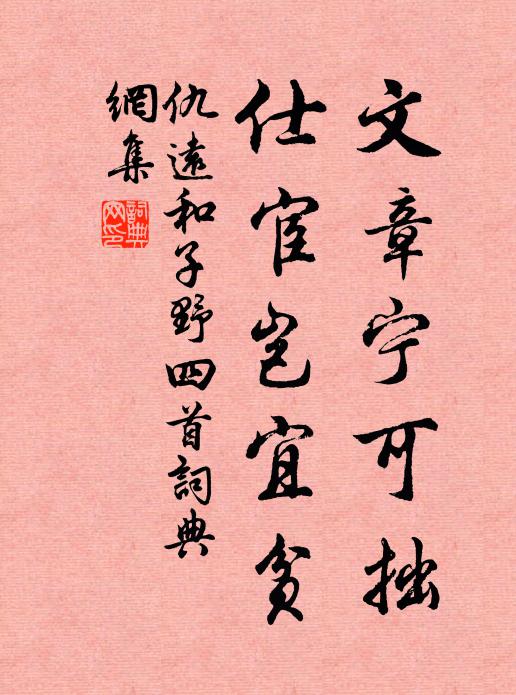 文章宁可拙
仕宦岂宜貧
仇遠和子野四首詞典
網集
詞典網印